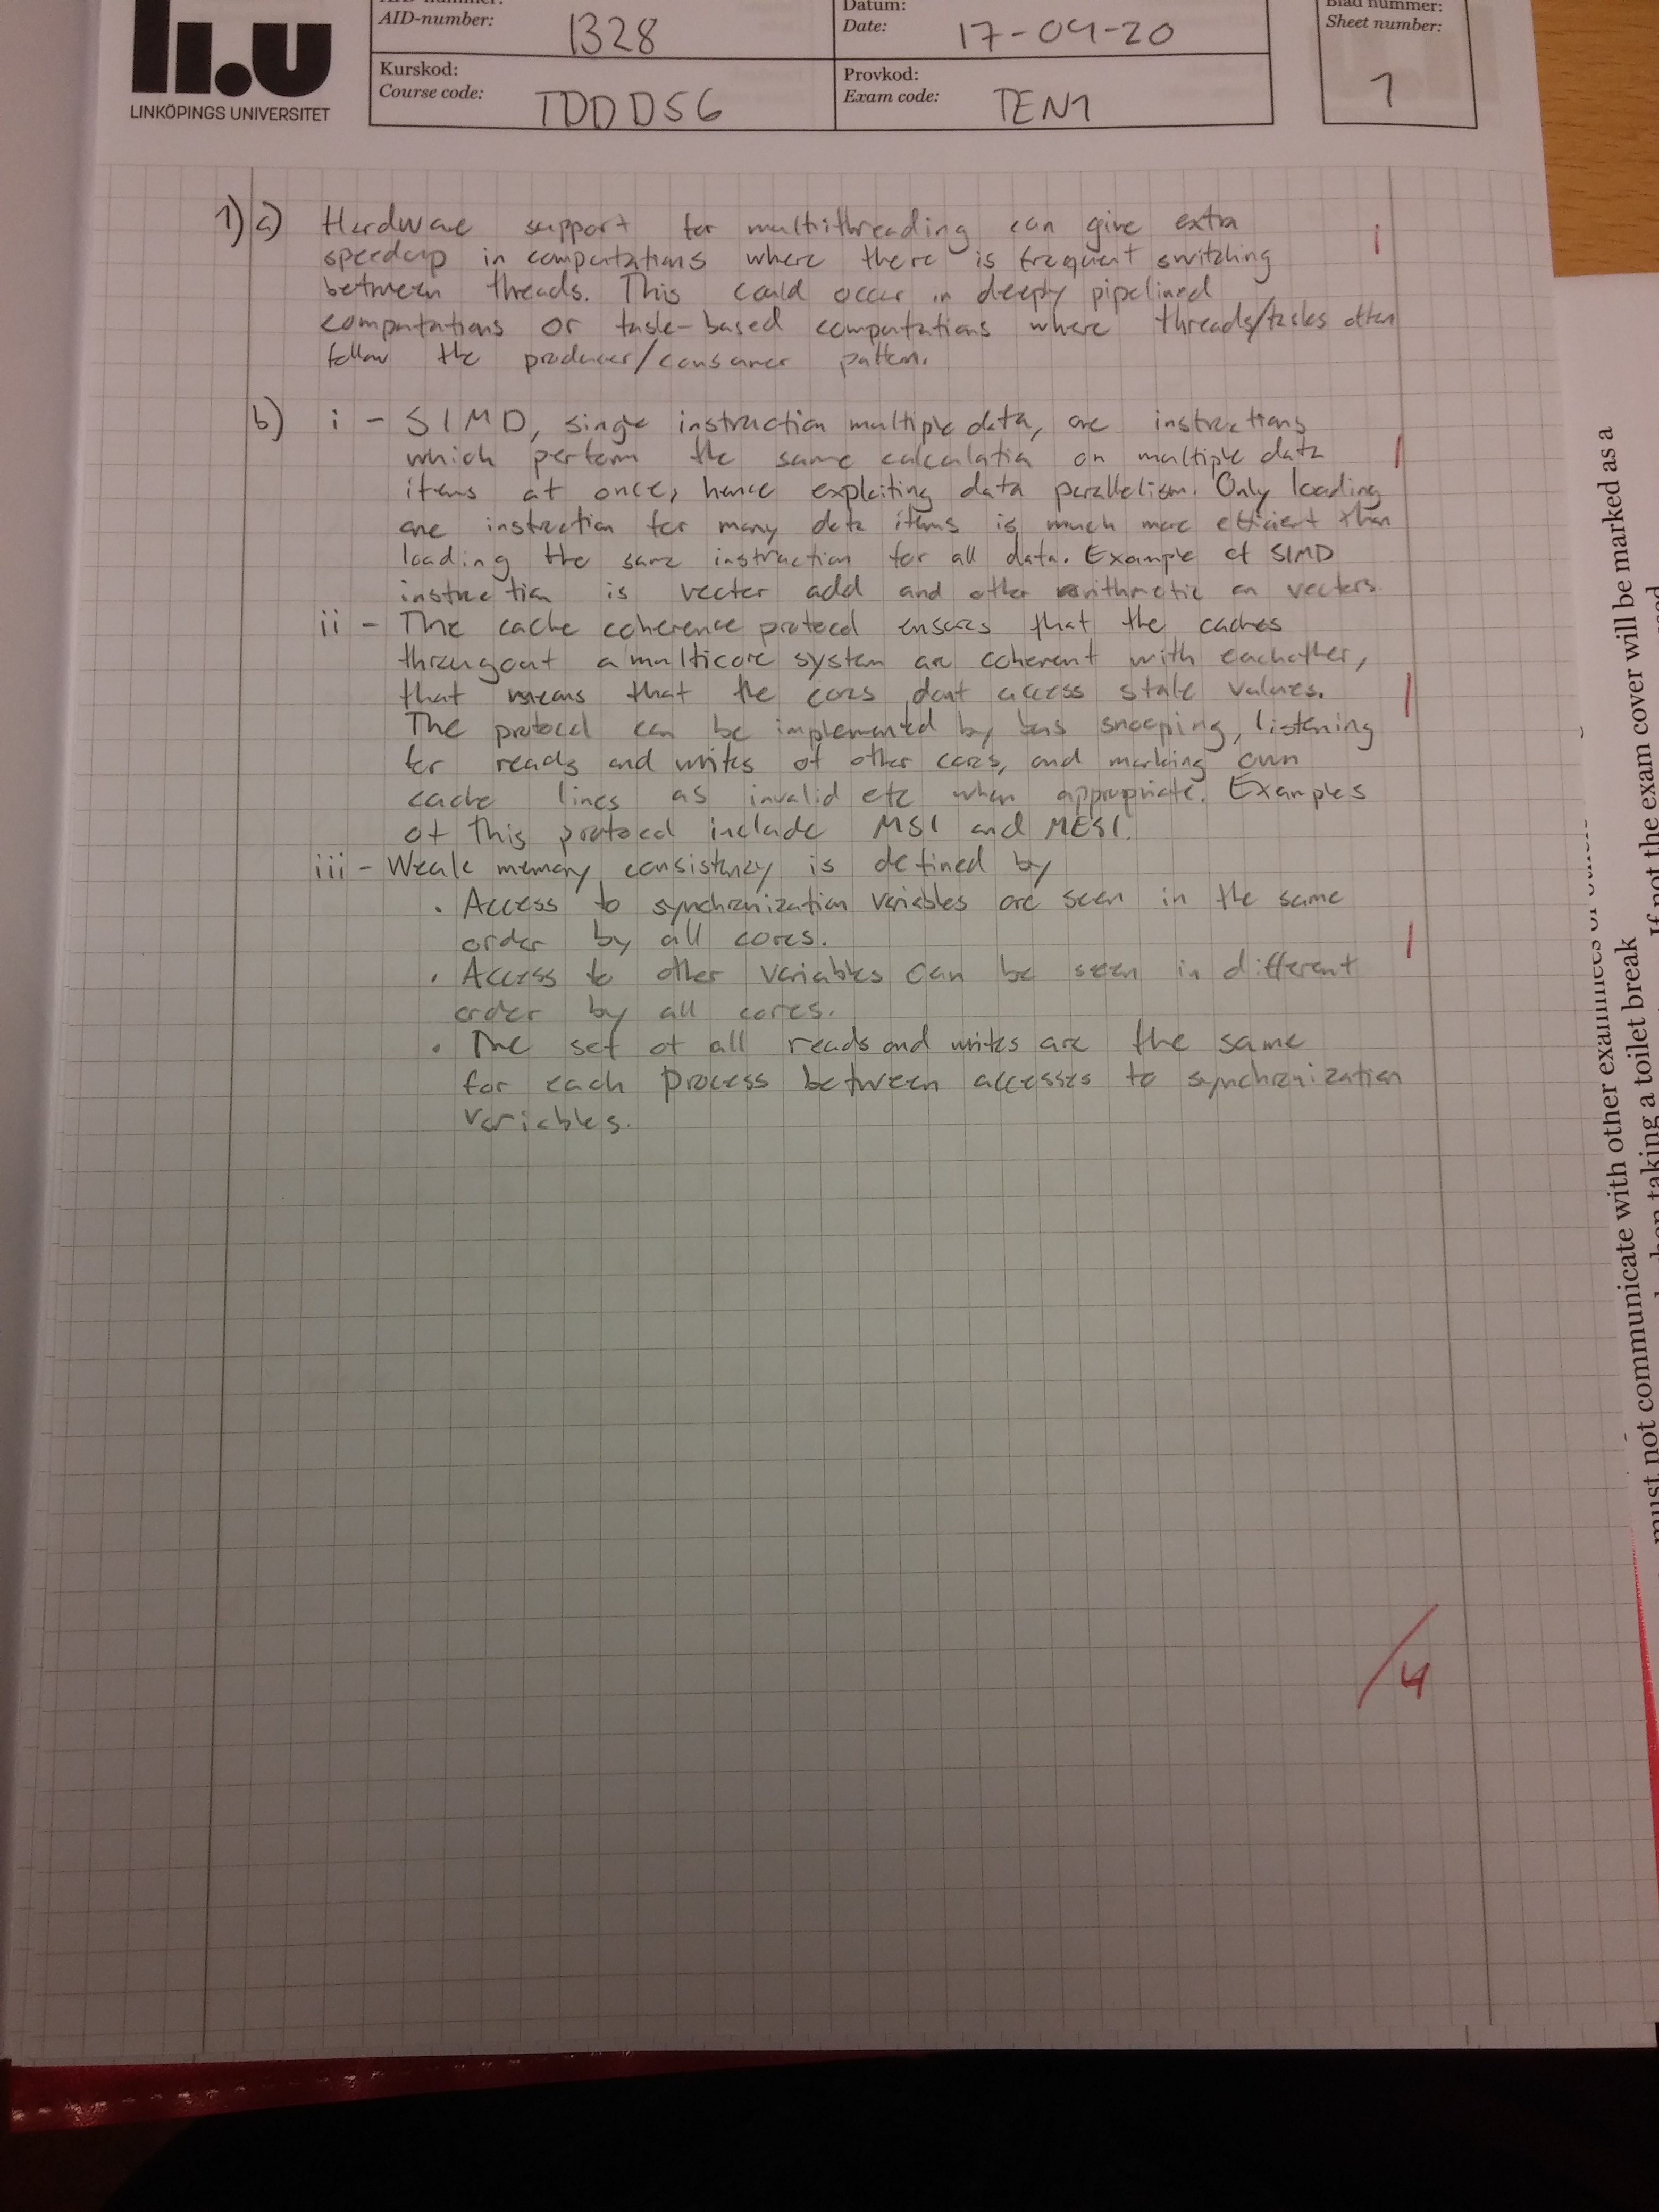 li.u
LINKÖPINGS UNIVERSITET
AID-number:
1328
Datum:
Date:
17-04-20
Blad nummer:
Sheet number:
1
Kurskod:
Course code:
TDDD56
Provkod:
Exam code:
TEN1
1) a) Hardware support for multithreading can give extra
speedup in computations where there is frequent switching
between threads. This could occur in deeply pipelined
computations or task-based computations where threads/tasks often
follow the producer/consumer pattern.
b) i - SIMD, single instruction multiple data, are instructions
which perform the same calculation on multiple data
items at once, hence exploiting data parallelism. Only loading
one instruction for many data items is much more efficient than
loading the same instruction for all data. Example of SIMD
instruction is vector add and other arithmetic on vectors.
ii - The cache coherence protocol ensures that the caches
througout a multicore system are coherent with eachother,
that means that the cores dont access stale values.
The protocol can be implemented by bus snooping, listening
for reads and writes of other cores, and marking own
cache lines as invalid etc when appropriate. Examples
of this protocol include MSI and MESI.
iii - Weak memory consistency is defined by
· Access to synchronization variables are seen in the same
order by all cores.
· Access to other variables can be seen in different
order by all cores.
· The set of all reads and writes are the same
for each process between accesses to synchronization
variables.
/4
must not communicate with other examinees or
taking a toilet break
If not the exam cover will be marked as a